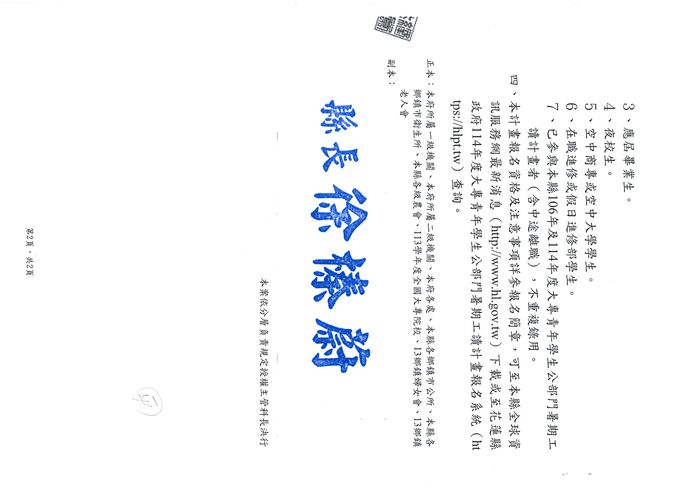 3、應屆畢業生。
4、夜校生。
5、空中商專或空中大學學生。
6、在職進修或假日進修部學生。
7、已參與本縣106年及114年度大專青年學生公部門暑期工
讀計畫者（含中途離職），不重複錄用。
四、本計畫報名資格及注意事項詳參報名簡章，可至本縣全球資
訊服務網最新消息（http://www.hl.gov.tw）下載或至花蓮縣
政府114年度大專青年學生公部門暑期工讀計畫報名系統（ht
tps://hlpt.tw）查詢。
正本：本府所屬一級機關、本府所屬二級機關、本府各處、本縣各鄉鎮市公所、本縣各
鄉鎮市衛生所、本縣各級農會、113學年度全國大專院校、13鄉鎮婦女會、13鄉鎮
老人會
副本：
縣長 徐榛蔚
本案依分層負責規定授權主管科長決行
第2頁，共2頁